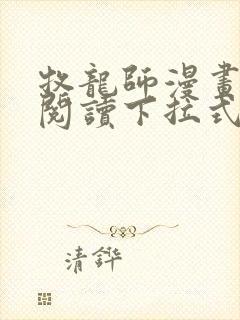 牧龍師漫畫
閱讀下拉式
清鏵